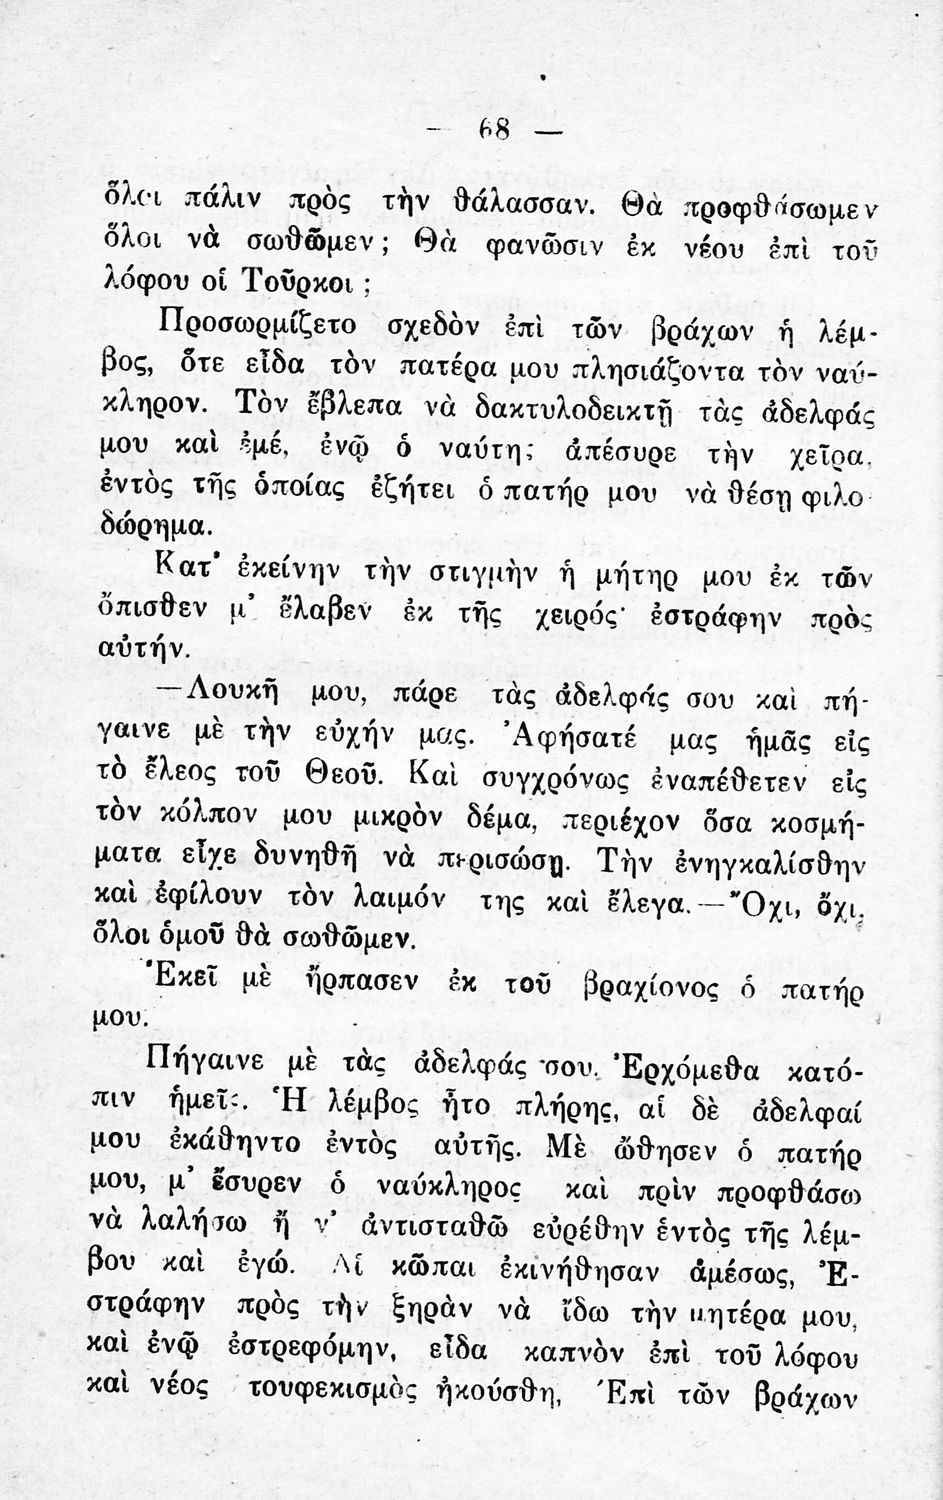 — 68 —
ὅλοι πάλιν πρὸς τὴν θάλασσαν. Θὰ προφθάσωμεν
ὅλοι νὰ σωθῶμεν ; Θὰ φανῶσιν ἐκ νέου ἐπὶ τοῦ
λόφου οἱ Τοῦρκοι ;
Προσωρμίζετο σχεδὸν ἐπὶ τῶν βράχων ἡ λέμ-
βος, ὅτε εἶδα τὸν πατέρα μου πλησιάζοντα τὸν ναύ-
κληρον. Τὸν ἔβλεπα νὰ δακτυλοδεικτῇ τὰς ἀδελφάς
μου καὶ ἐμέ, ἐνῷ ὁ ναύτης ἀπέσυρε τὴν χεῖρα,
ἐντὸς τῆς ὁποίας ἐζήτει ὁ πατήρ μου νὰ θέσῃ φιλο-
δώρημα.
Κατ' ἐκείνην τὴν στιγμὴν ἡ μήτηρ μου ἐκ τῶν
ὄπισθεν μ' ἔλαβεν ἐκ τῆς χειρός· ἐστράφην πρὸς
αὐτήν.
—Λουκῆ μου, πάρε τὰς ἀδελφάς σου καὶ πή-
γαινε μὲ τὴν εὐχήν μας. Ἀφήσατέ μας ἡμᾶς εἰς
τὸ ἔλεος τοῦ Θεοῦ. Καὶ συγχρόνως ἐναπέθετεν εἰς
τὸν κόλπον μου μικρὸν δέμα, περιέχον ὅσα κοσμή-
ματα εἶχε δυνηθῆ νὰ περισώσῃ. Τὴν ἐνηγκαλίσθην
καὶ ἐφίλουν τὸν λαιμόν της καὶ ἔλεγα.—Ὄχι, ὄχι,
ὅλοι ὁμοῦ θὰ σωθῶμεν.
Ἐκεῖ μὲ ἥρπασεν ἐκ τοῦ βραχίονος ὁ πατήρ
μου.
Πήγαινε μὲ τὰς ἀδελφάς σου. Ἐρχόμεθα κατό-
πιν ἡμεῖς. Ἡ λέμβος ἦτο πλήρης, αἱ δὲ ἀδελφαί
μου ἐκάθηντο ἐντὸς αὐτῆς. Μὲ ὤθησεν ὁ πατήρ
μου, μ' ἔσυρεν ὁ ναύκληρος καὶ πρὶν προφθάσω
νὰ λαλήσω ἢ ν' ἀντισταθῶ εὑρέθην ἐντὸς τῆς λέμ-
βου καὶ ἐγώ. Αἱ κῶπαι ἐκινήθησαν ἀμέσως, Ἐ-
στράφην πρὸς τὴν ξηρὰν νὰ ἴδω τὴν μητέρα μου,
καὶ ἐνῷ ἐστρεφόμην, εἶδα καπνὸν ἐπὶ τοῦ λόφου
καὶ νέος τουφεκισμὸς ἠκούσθη, Ἐπὶ τῶν βράχων